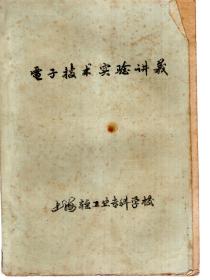 電子技术实验讲義
上海轻工业专科学校